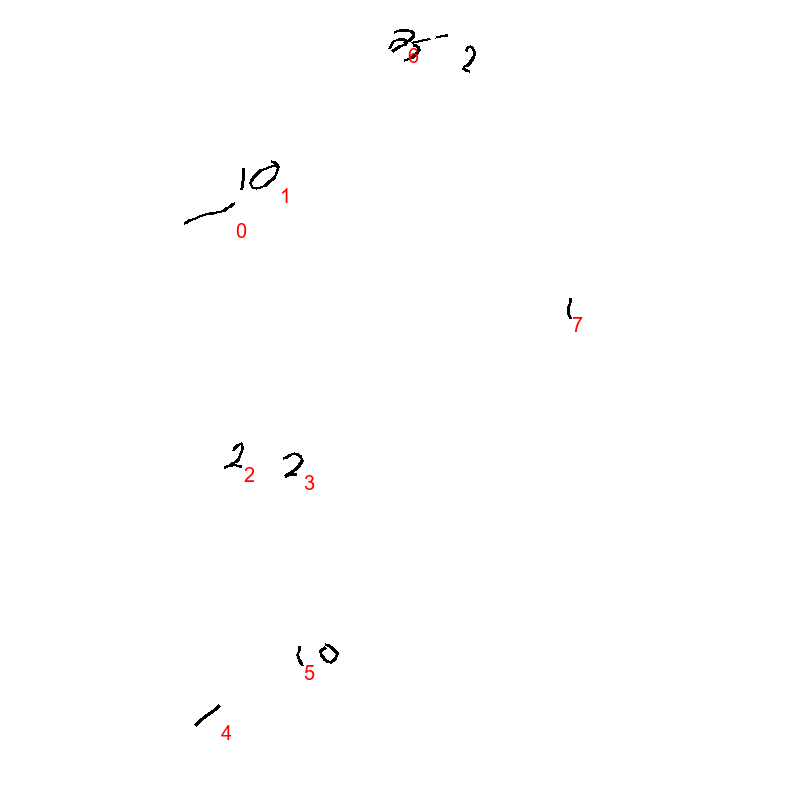 6 2
10 1
0
1 7
2 2 2 3
10 5
4